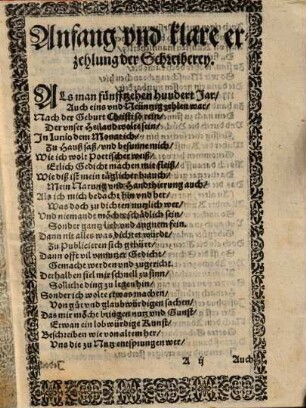 Anfang vnd klare er
zehlung der Schreiberey.
ALs man fünffzehen hundert Jar/
Auch eins vnd Neüntzig zehlen war/
Nach der Geburt Christi so rein/
Der vnser Heilandt wolte sein/
In Junio dem Monat ich/
Zu Hauß saß/ vnd besunne mich/
Wie ich wolt Poetischer weiß/
Etlich Gedicht machen mit fleiß/
Wie diß ist mein täglicher brauch/
Mein Narung vnd Handthierung auch/
Als ich mich bedacht hin vnd her/
Was doch zu dichten müglich wer/
Vnd niemandt möcht schädlich sein/
Sonder gantz lieb vnd angnem fein.
Dann nit alles was dichtet würdt/
Zu Publicieren sich gebürt/
Dann offt vil vnnutzer Gedicht/
Gemacht werden vnd zugericht.
Derhalben fiel mir schnell zu sinn/
Solliche ding zu legen hin/
Sonder ich wolte etwas machen/
Von gůt vnd glaubwürdigen sachen/
Das mir möcht bringen nutz vnd Gunst/
Etwan ein lobwürdige Kunst/
Beschreiben wie von altem her/
Vns die zu Nutz entsprungen wer/
A ij Auch